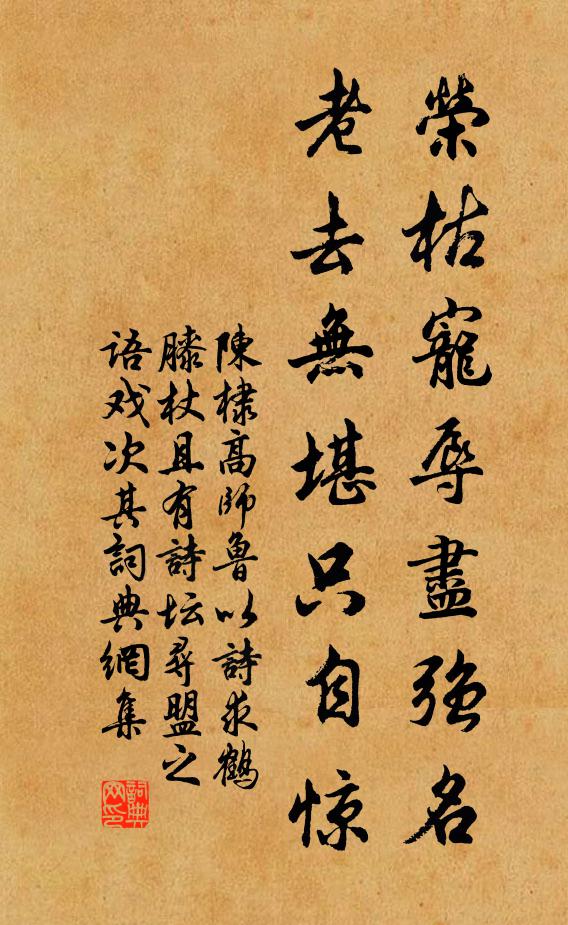 榮枯寵辱盡强名
老去無堪只自惊
陳棣高師魯以詩求鶴
膝杖且有詩坛尋盟之
语戏次其詞典網集
詞典网印